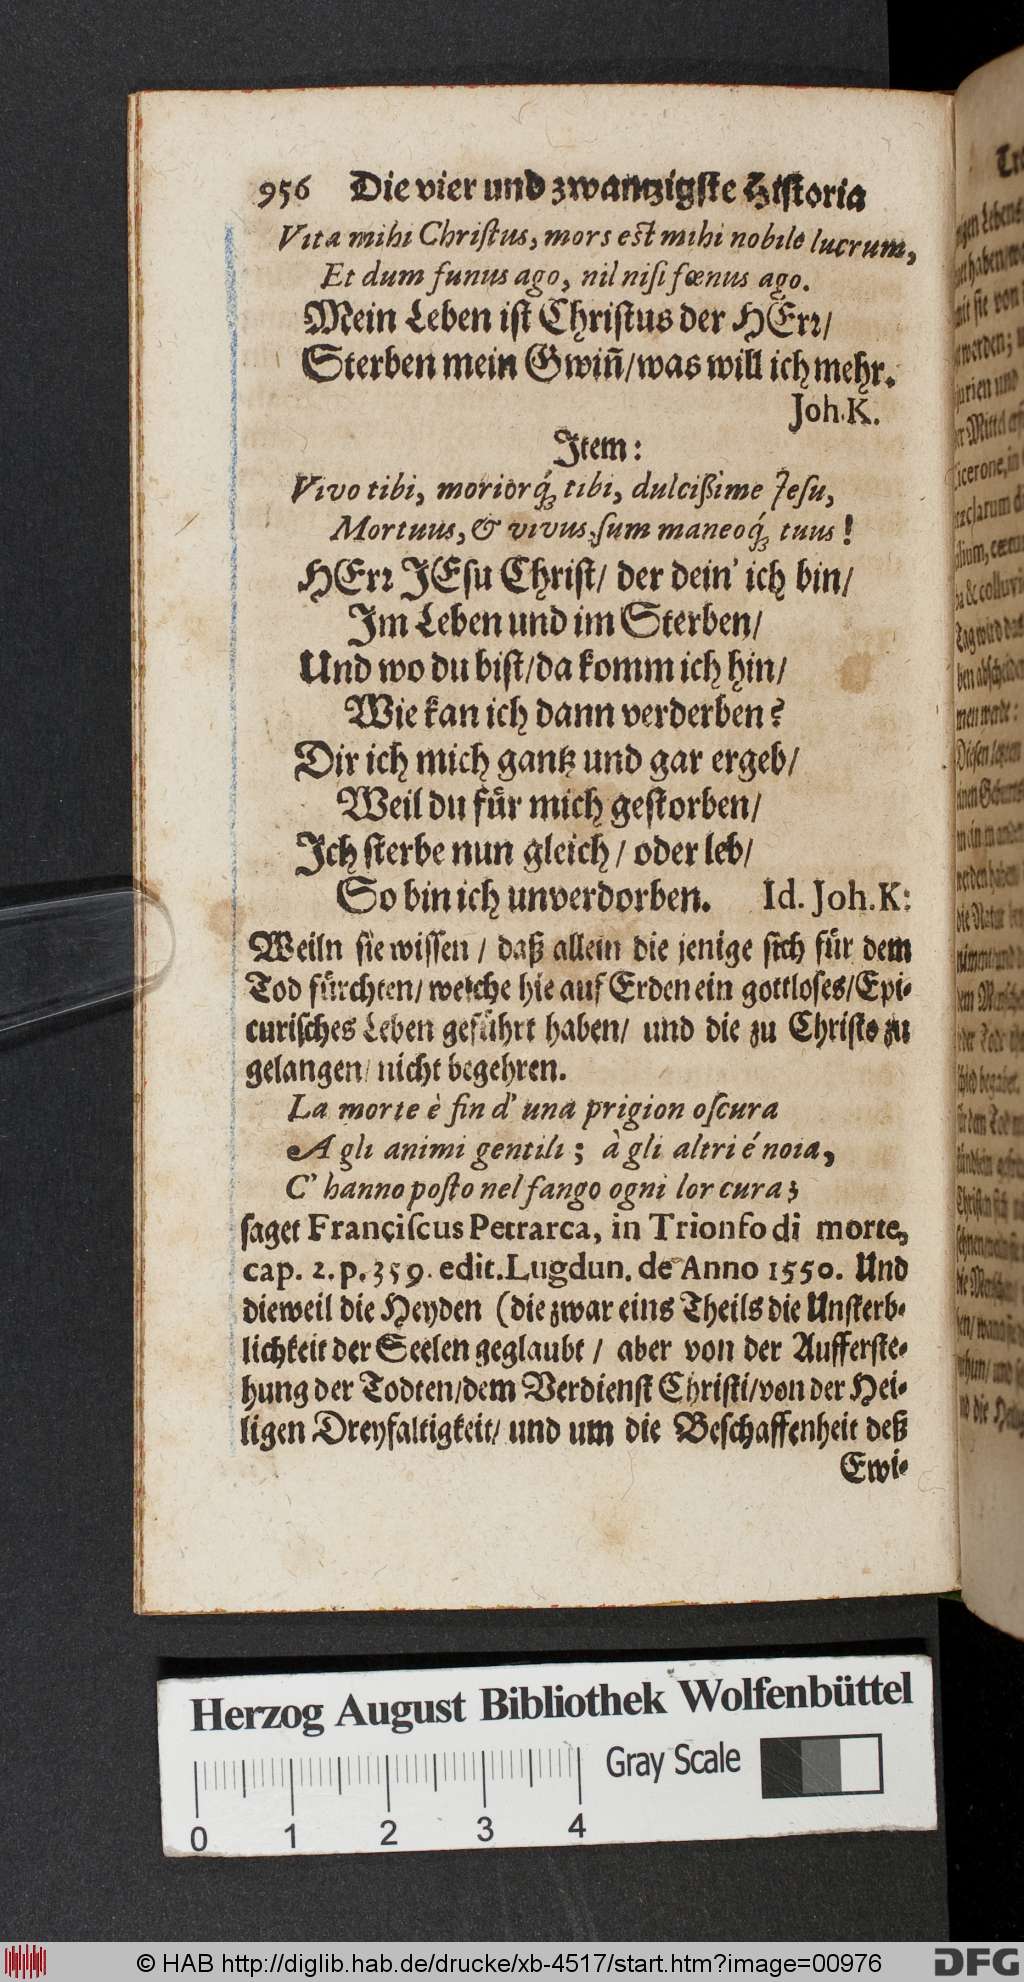 956 Die vier und zwantzigste Historia
Vita mihi Chriſtus, mors eſt mihi nobile lucrum,
Et dum funus ago, nil niſi fœnus ago.
Mein Leben iſt Chriſtus der HErꝛ/
Sterben mein Gwiñ/was will ich mehr.
Joh.K.
Item:
Vivo tibi, moriorq́ꝫ tibi, dulcißime Jeſu,
Mortuus, & vivus, ſum maneoq́ꝫ tuus!
HErꝛ JEſu Chriſt/ der dein’ ich bin/
Im Leben und im Sterben/
Und wo du biſt/da komm ich hin/
Wie kan ich dann verderben?
Dir ich mich gantz und gar ergeb/
Weil du fuͤr mich geſtorben/
Ich ſterbe nun gleich/ oder leb/
So bin ich unverdorben. Id. Joh.K:
Weiln ſie wiſſen/ daß allein die jenige ſich fuͤr dem
Tod fuͤrchten/ welche hie auf Erden ein gottloſes/Epi-
curiſches Leben gefuͤhrt haben/ und die zu Chriſto zu
gelangen/ nicht begehren.
La morte è fin d’ una prigion oſcura
A gli animi gentili; à gli altri é noia,
C’ hanno poſto nel fango ogni lor cura;
ſaget Franciſcus Petrarca, in Trionfo di morte,
cap. 2. p. 359. edit. Lugdun. de Anno 1550. Und
dieweil die Heyden (die zwar eins Theils die Unſterb-
lichkeit der Seelen geglaubt/ aber von der Aufferſte-
hung der Todten/dem Verdienſt Chriſti/von der Hei-
ligen Dreyfaltigkeit/ und um die Beſchaffenheit deß
Ewi-
Herzog August Bibliothek Wolfenbüttel
Gray Scale
0 1 2 3 4
© HAB http://diglib.hab.de/drucke/xb-4517/start.htm?image=00976
DFG